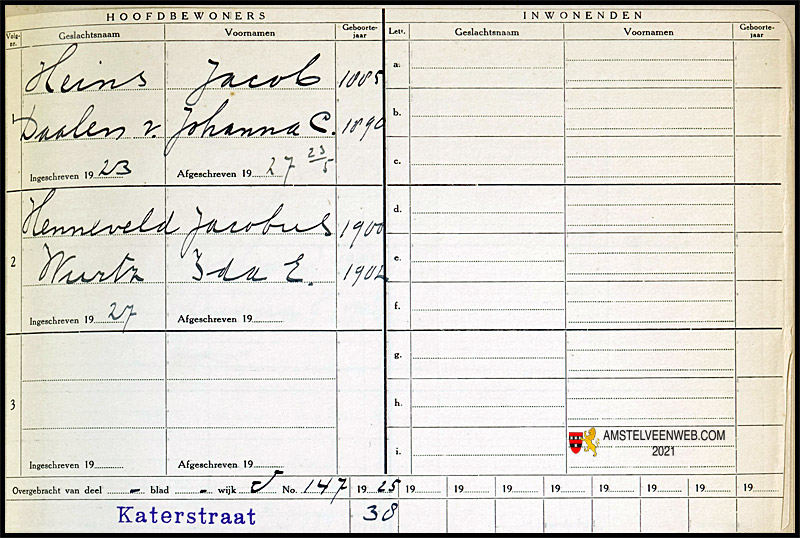 HOOFDBEWONERS INWONENDEN
Volg-nr. Geslachtsnaam Voornamen Geboorte-jaar Letr. Geslachtsnaam Voornamen Geboorte-jaar
Heins Jacob 1885 a.
1 Daalen v. Johanna C. 1890 b.
Ingeschreven 1923 Afgeschreven 1927 23/5 c.
Henneveld Jacobus 1900 d.
2 Wurtz Ida E. 1902 e.
Ingeschreven 1927 Afgeschreven 19 f.
g.
3 h.
Ingeschreven 19 Afgeschreven 19 i.
AMSTELVEENWEB.COM
2021
Overgebracht van deel - blad - wijk No. 147 1925 19 19 19 19 19 19 19 19
Katerstraat 38